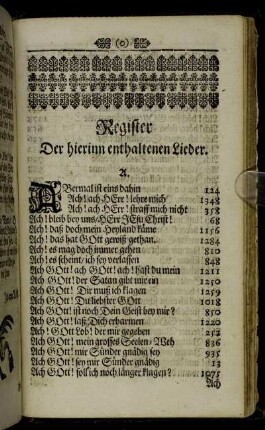 (o)
Register
Der hierinn enthaltenen Lieder.
A.
ABermal ist eins dahin 124
Ach! ach HErr! lehre mich 1348
Ach! ach HErr! straff mich nicht 358
Ach! bleib bey uns, HErr JEsu Christ! 68
Ach! daß doch mein Heyland käme 1156
Ach! das hat GOtt gewiß gethan. 1284
Ach! es mag doch immer gehen 810
Ach! es scheint, ich sey verlassen 848
Ach GOtt! ach GOtt! ach! hast du mein 1211
Ach GOtt! der Satan gibt mir ein 1250
Ach GOtt! Dir muß ich klagen 1259
Ach GOtt! Du liebster GOtt 1018
Ach GOtt! ist noch Dein Geist bey mir? 850
Ach GOtt! laß Dich erbarmen 1220
Ach! GOtt Lob! der mir gegeben 252
Ach GOtt! mein grosses Seelen-Weh 836
Ach GOtt! mir Sünder gnädig sey 935
Ach GOtt! sey mir Sünder gnädig 13
Ach GOtt! soll ich noch länger klagen? 1075
Ach